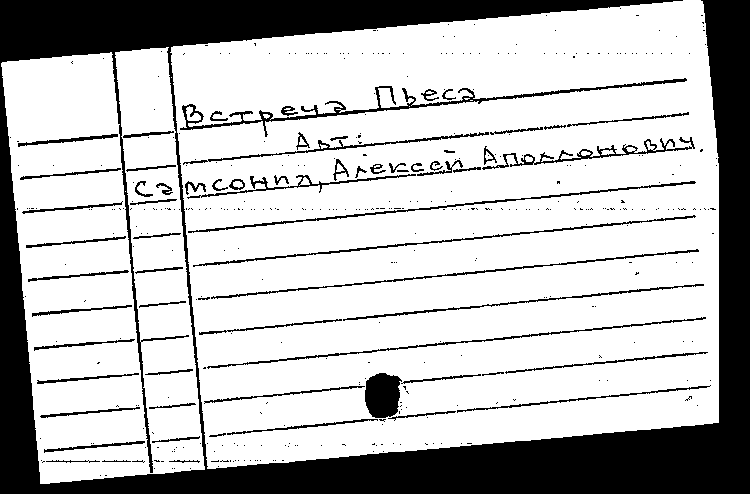 Встреча Пьеса,
Авт:
Самсония, Алексей Аполлонович.